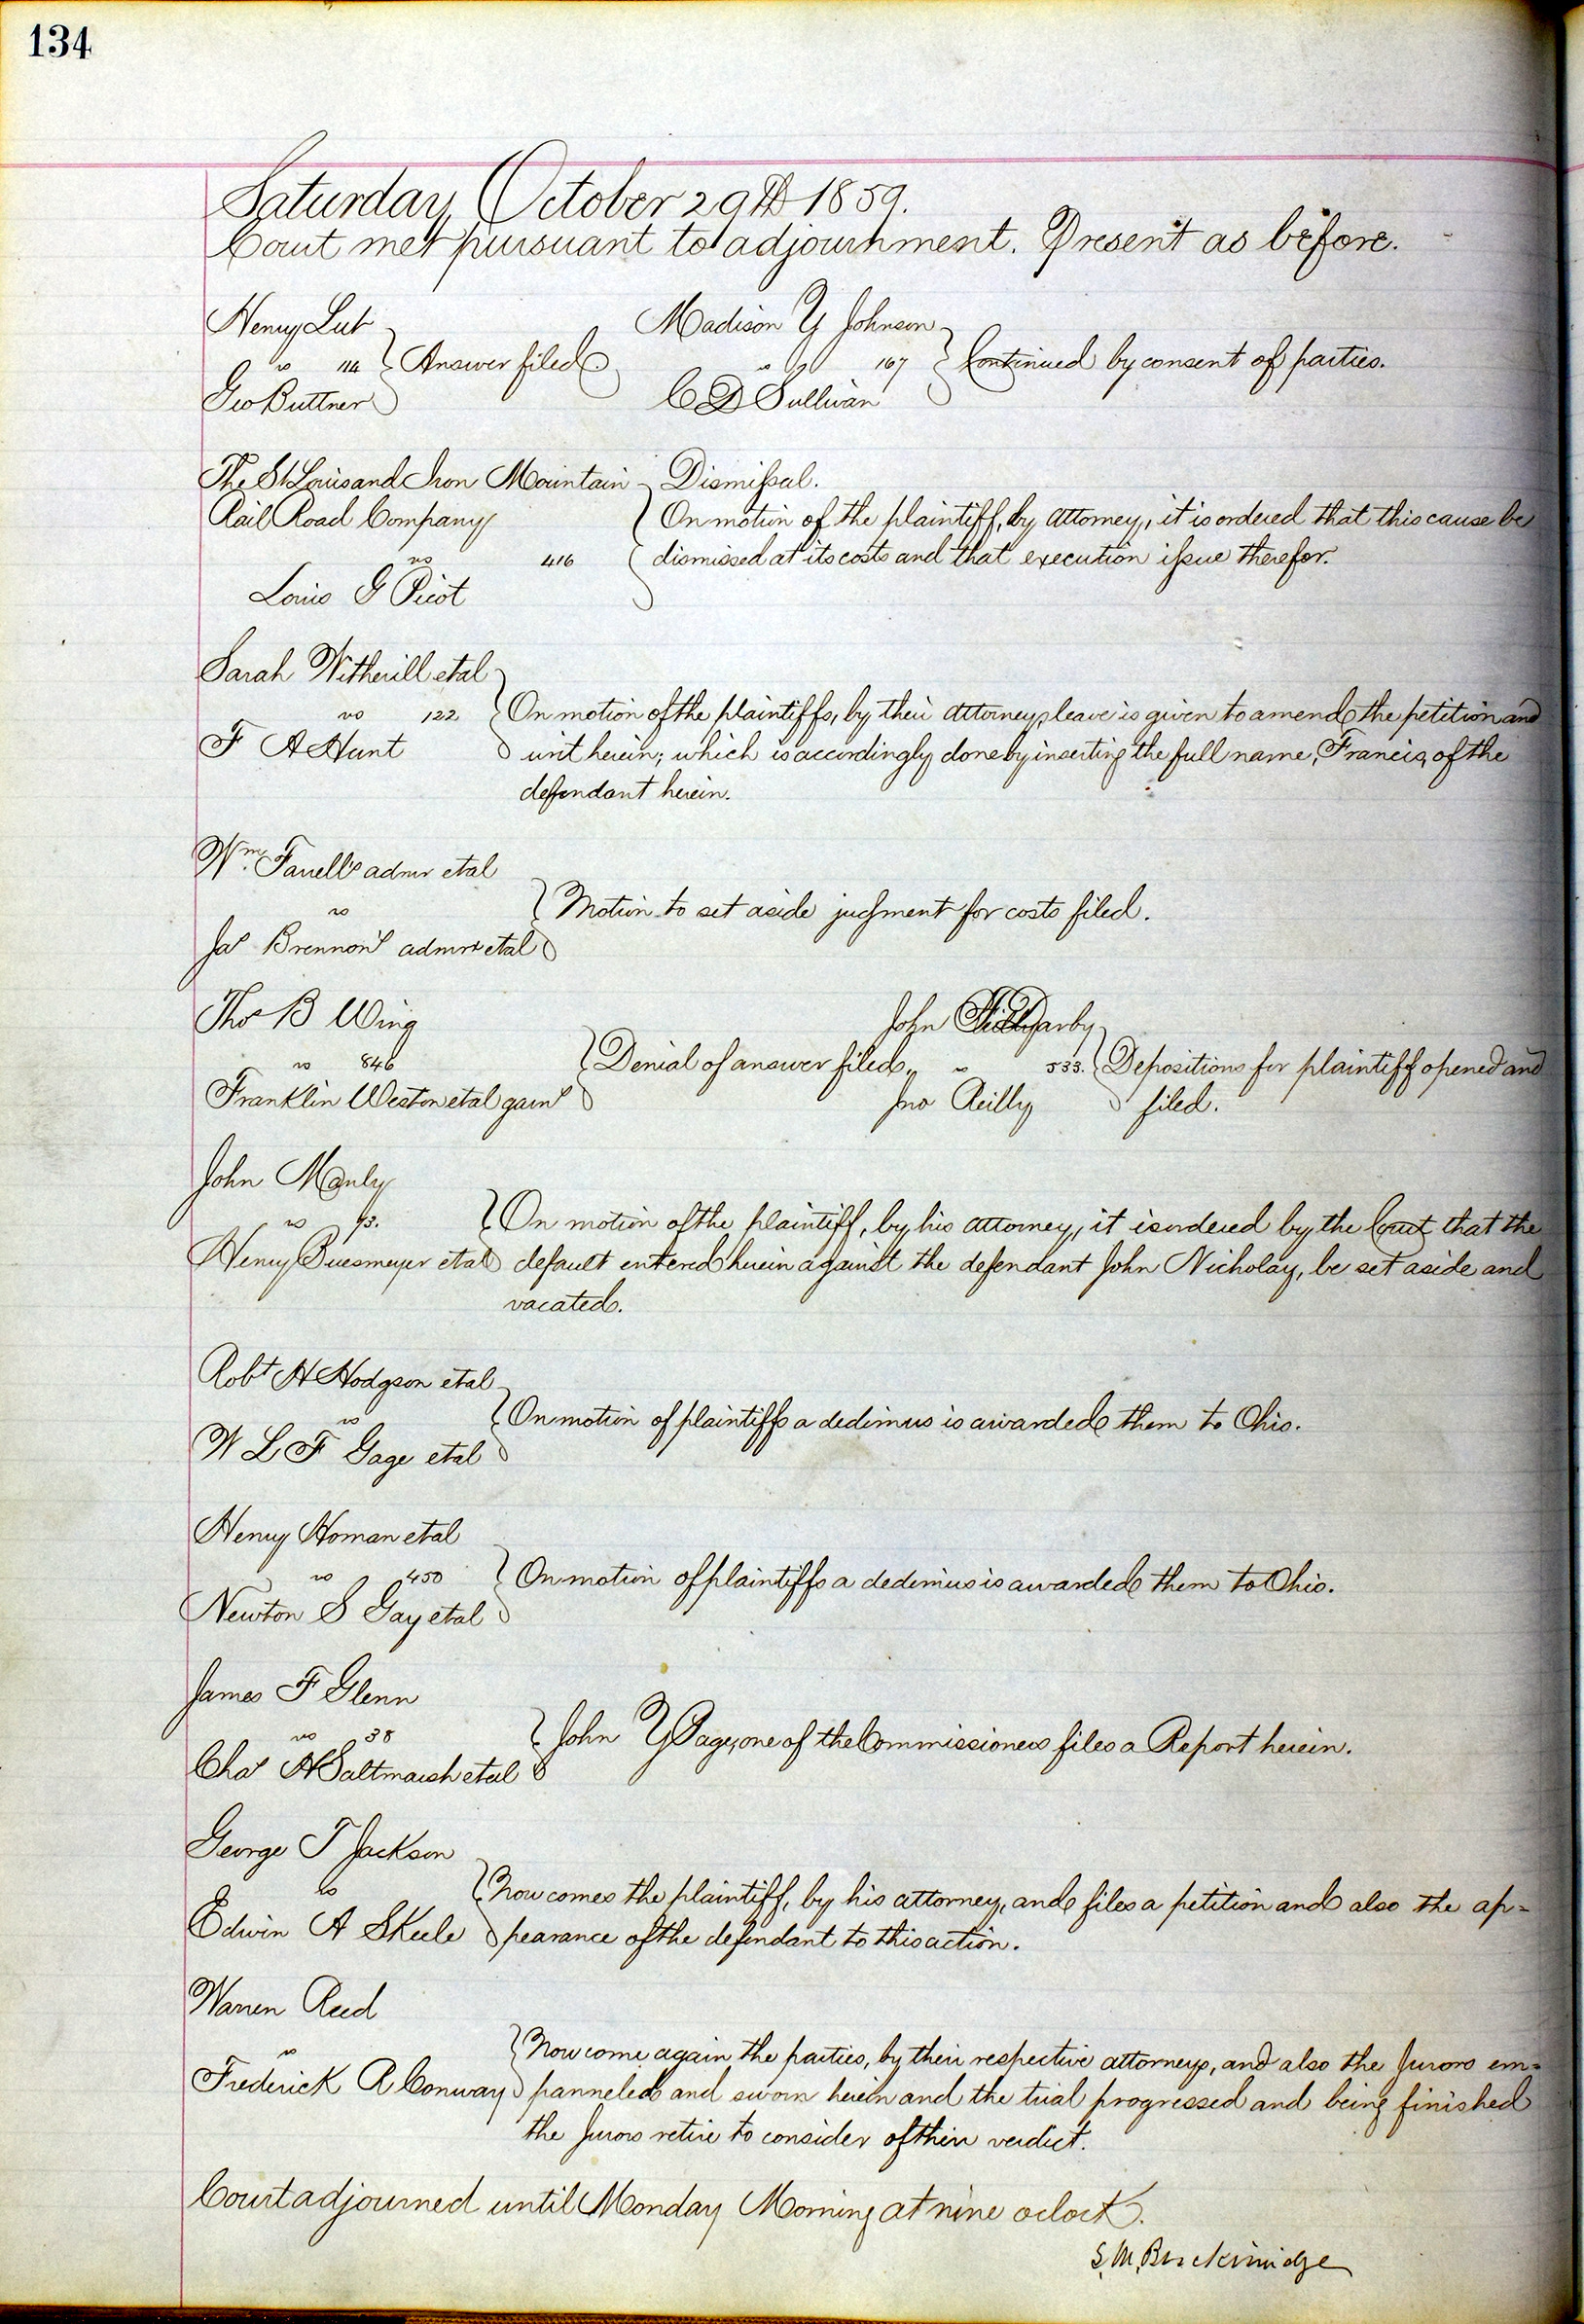 134
Saturday October 29th 1859.
Court met pursuant to adjournment. Present as before.
Henry Lut
vs 114 Answer filed.
Geo Buttner
Madison Y Johnson
vs 167 Continued by consent of parties.
C D Sullivan
The St Louis and Iron Mountain
Rail Road Company
vs 416
Louis G Picot
Dismissal.
On motion of the plaintiff, by attorney, it is ordered that this cause be
dismissed at its costs and that execution issue therefor.
Sarah Witherill et al
vs 122
F A Hunt
On motion of the plaintiffs, by their attorneys leave is given to amend the petition and
writ herein; which is accordingly done by inserting the full name, Francis, of the
defendant herein.
Wm. Farrell's admr et al
vs
Jas Brennon's admrx et al
Motion to set aside judgment for costs filed.
Thos B Wing
vs 846
Franklin Weston et al garns
Denial of answer filed.
John Darby
vs 533.
Jno Reilly
Depositions for plaintiff opened and
filed.
John Manly
vs 93.
Henry Buesmeyer et al
On motion of the plaintiff, by his attorney, it is ordered by the Court that the
default entered herein against the defendant John Nicholay, be set aside and
vacated.
Robt H Hodgson et al
vs
W L F Gage et al
On motion of plaintiffs a dedimus is awarded them to Ohio.
Henry Homan et al
vs 450
Newton S Gay et al
On motion of plaintiffs a dedimus is awarded them to Ohio.
James F Glenn
vs 38
Chas H Saltmarsh et al
John Y Page, one of the Commissioners files a Report herein.
George T Jackson
vs
Edwin A Skeele
Now comes the plaintiff, by his attorney, and files a petition and also the ap=
pearance of the defendant to this action.
Warren Reed
vs
Frederick R Conway
Now come again the parties, by their respective attorneys, and also the Jurors em=
panneled and sworn herein and the trial progressed and being finished
the Jurors retire to consider of their verdict.
Court adjourned until Monday Morning at nine oclock.
S. M. Breckinridge